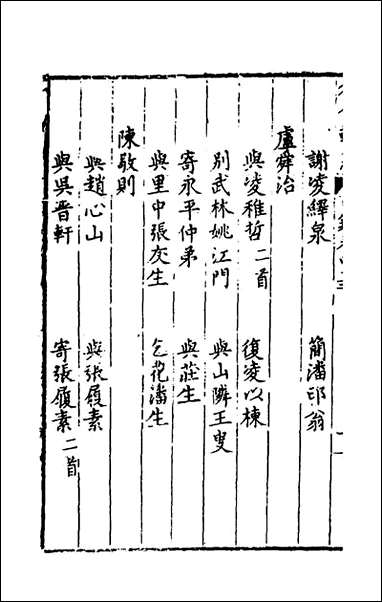 謝凌繹泉　簡潘邛翁
盧舜治
與凌稚哲二首　復凌以棟
別武林姚江門　與山隣王叟
寄永平仲弟　與莊生
與里中張友生　乞花潘生
陳敬則
與趙心山　與張履素
與吳晉軒　寄張履素二首